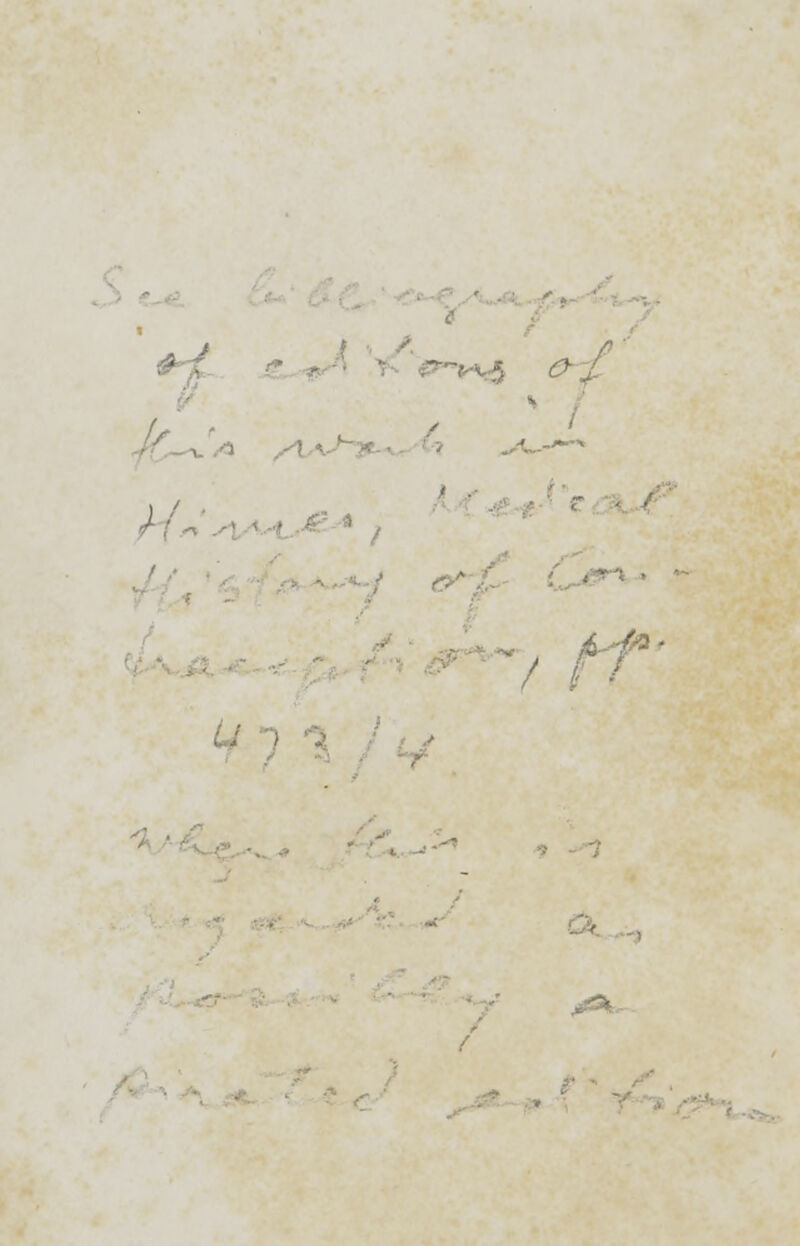 See bibliography
of editions of
this work in
Himes, Medical
History of Con-
traception, pp.
473/4
where this is
regarded as
possibly a
pirated edition